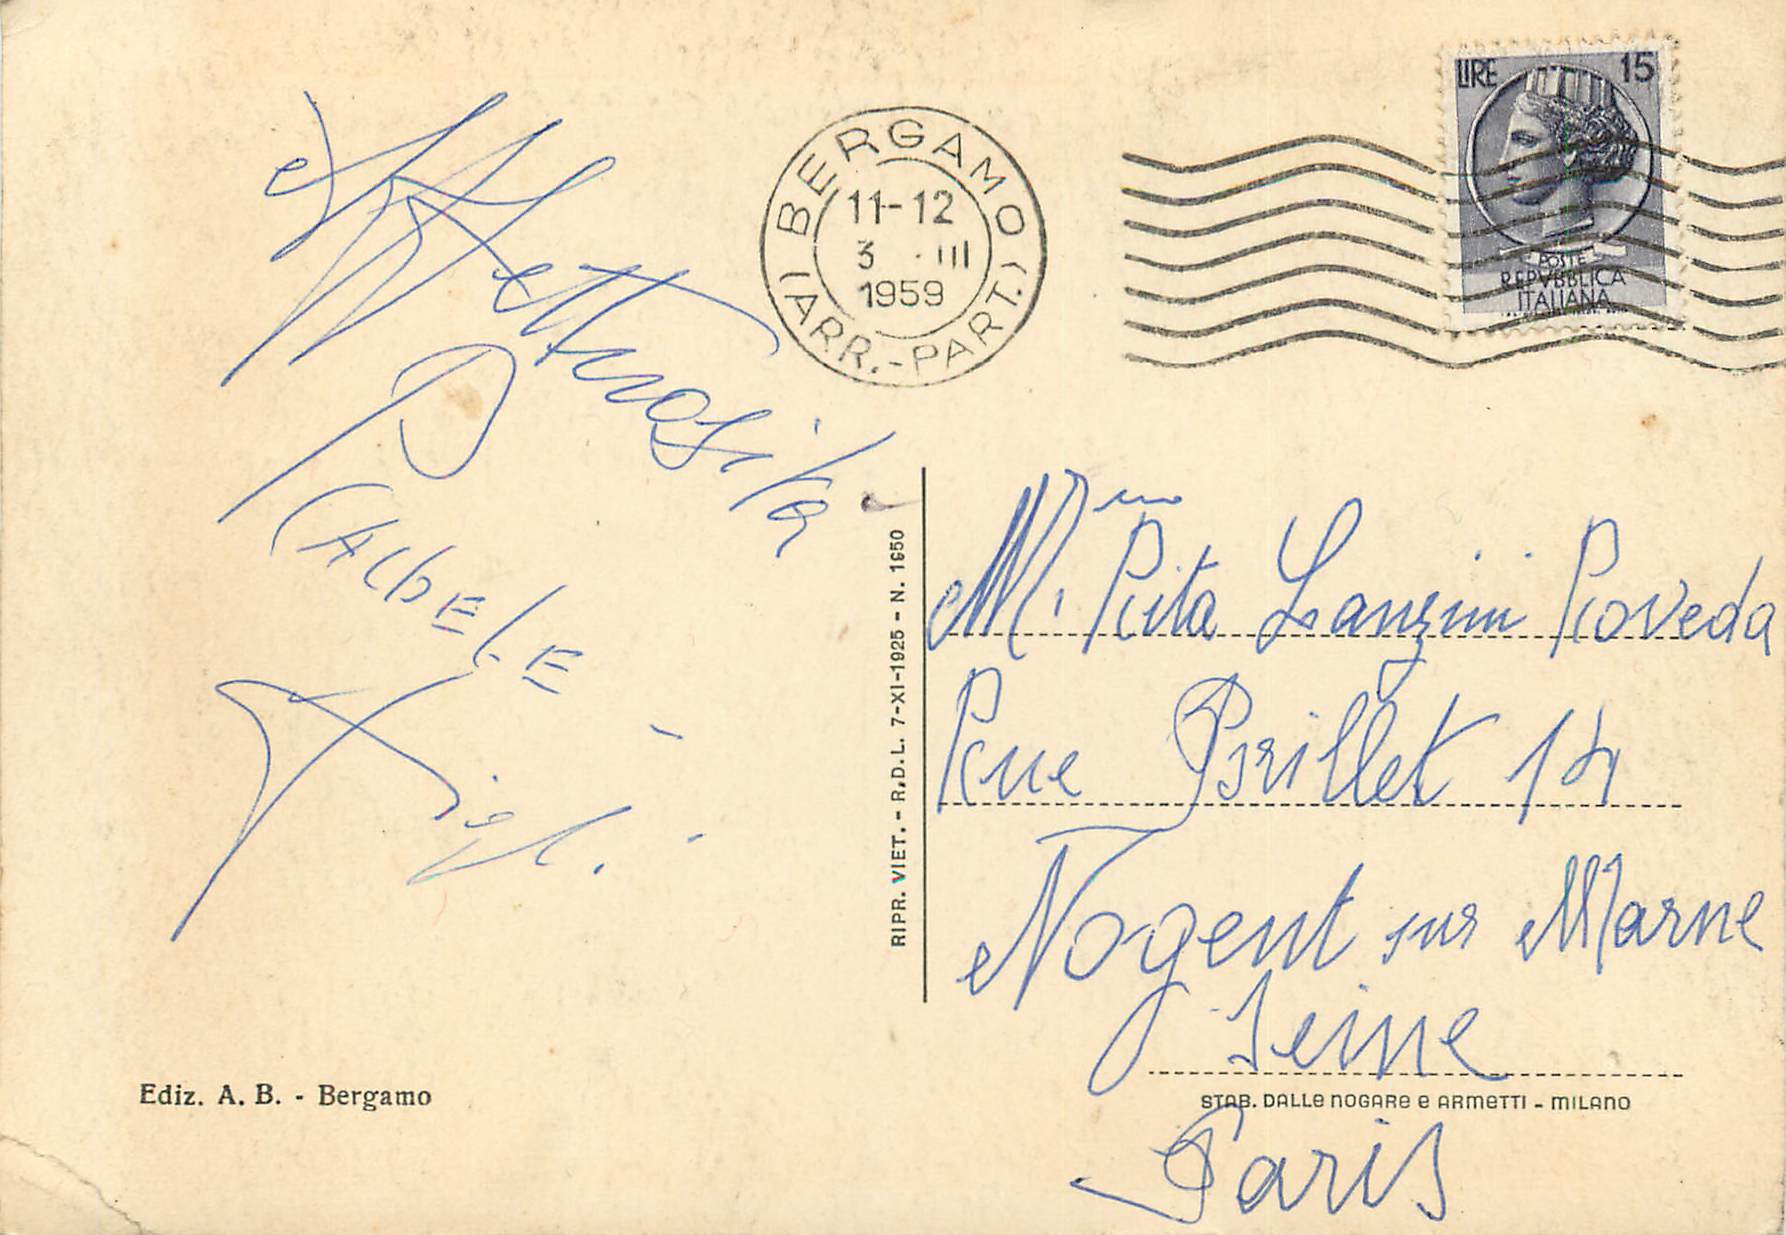 Affettuosità
Rachele
Figli.
BERGAMO
(ARR.-PART.)
11-12
3 · III
1959
LIRE 15
POSTE
REPVBBLICA
ITALIANA
Mme Rita Lanzini Roveda
Rue Brillet 14
Nogent sur Marne
Seine
Paris
RIPR. VIET. - R.D.L. 7-XI-1925 - N. 1950
Ediz. A. B. - Bergamo
STAB. DALLE NOGARE E ARMETTI - MILANO